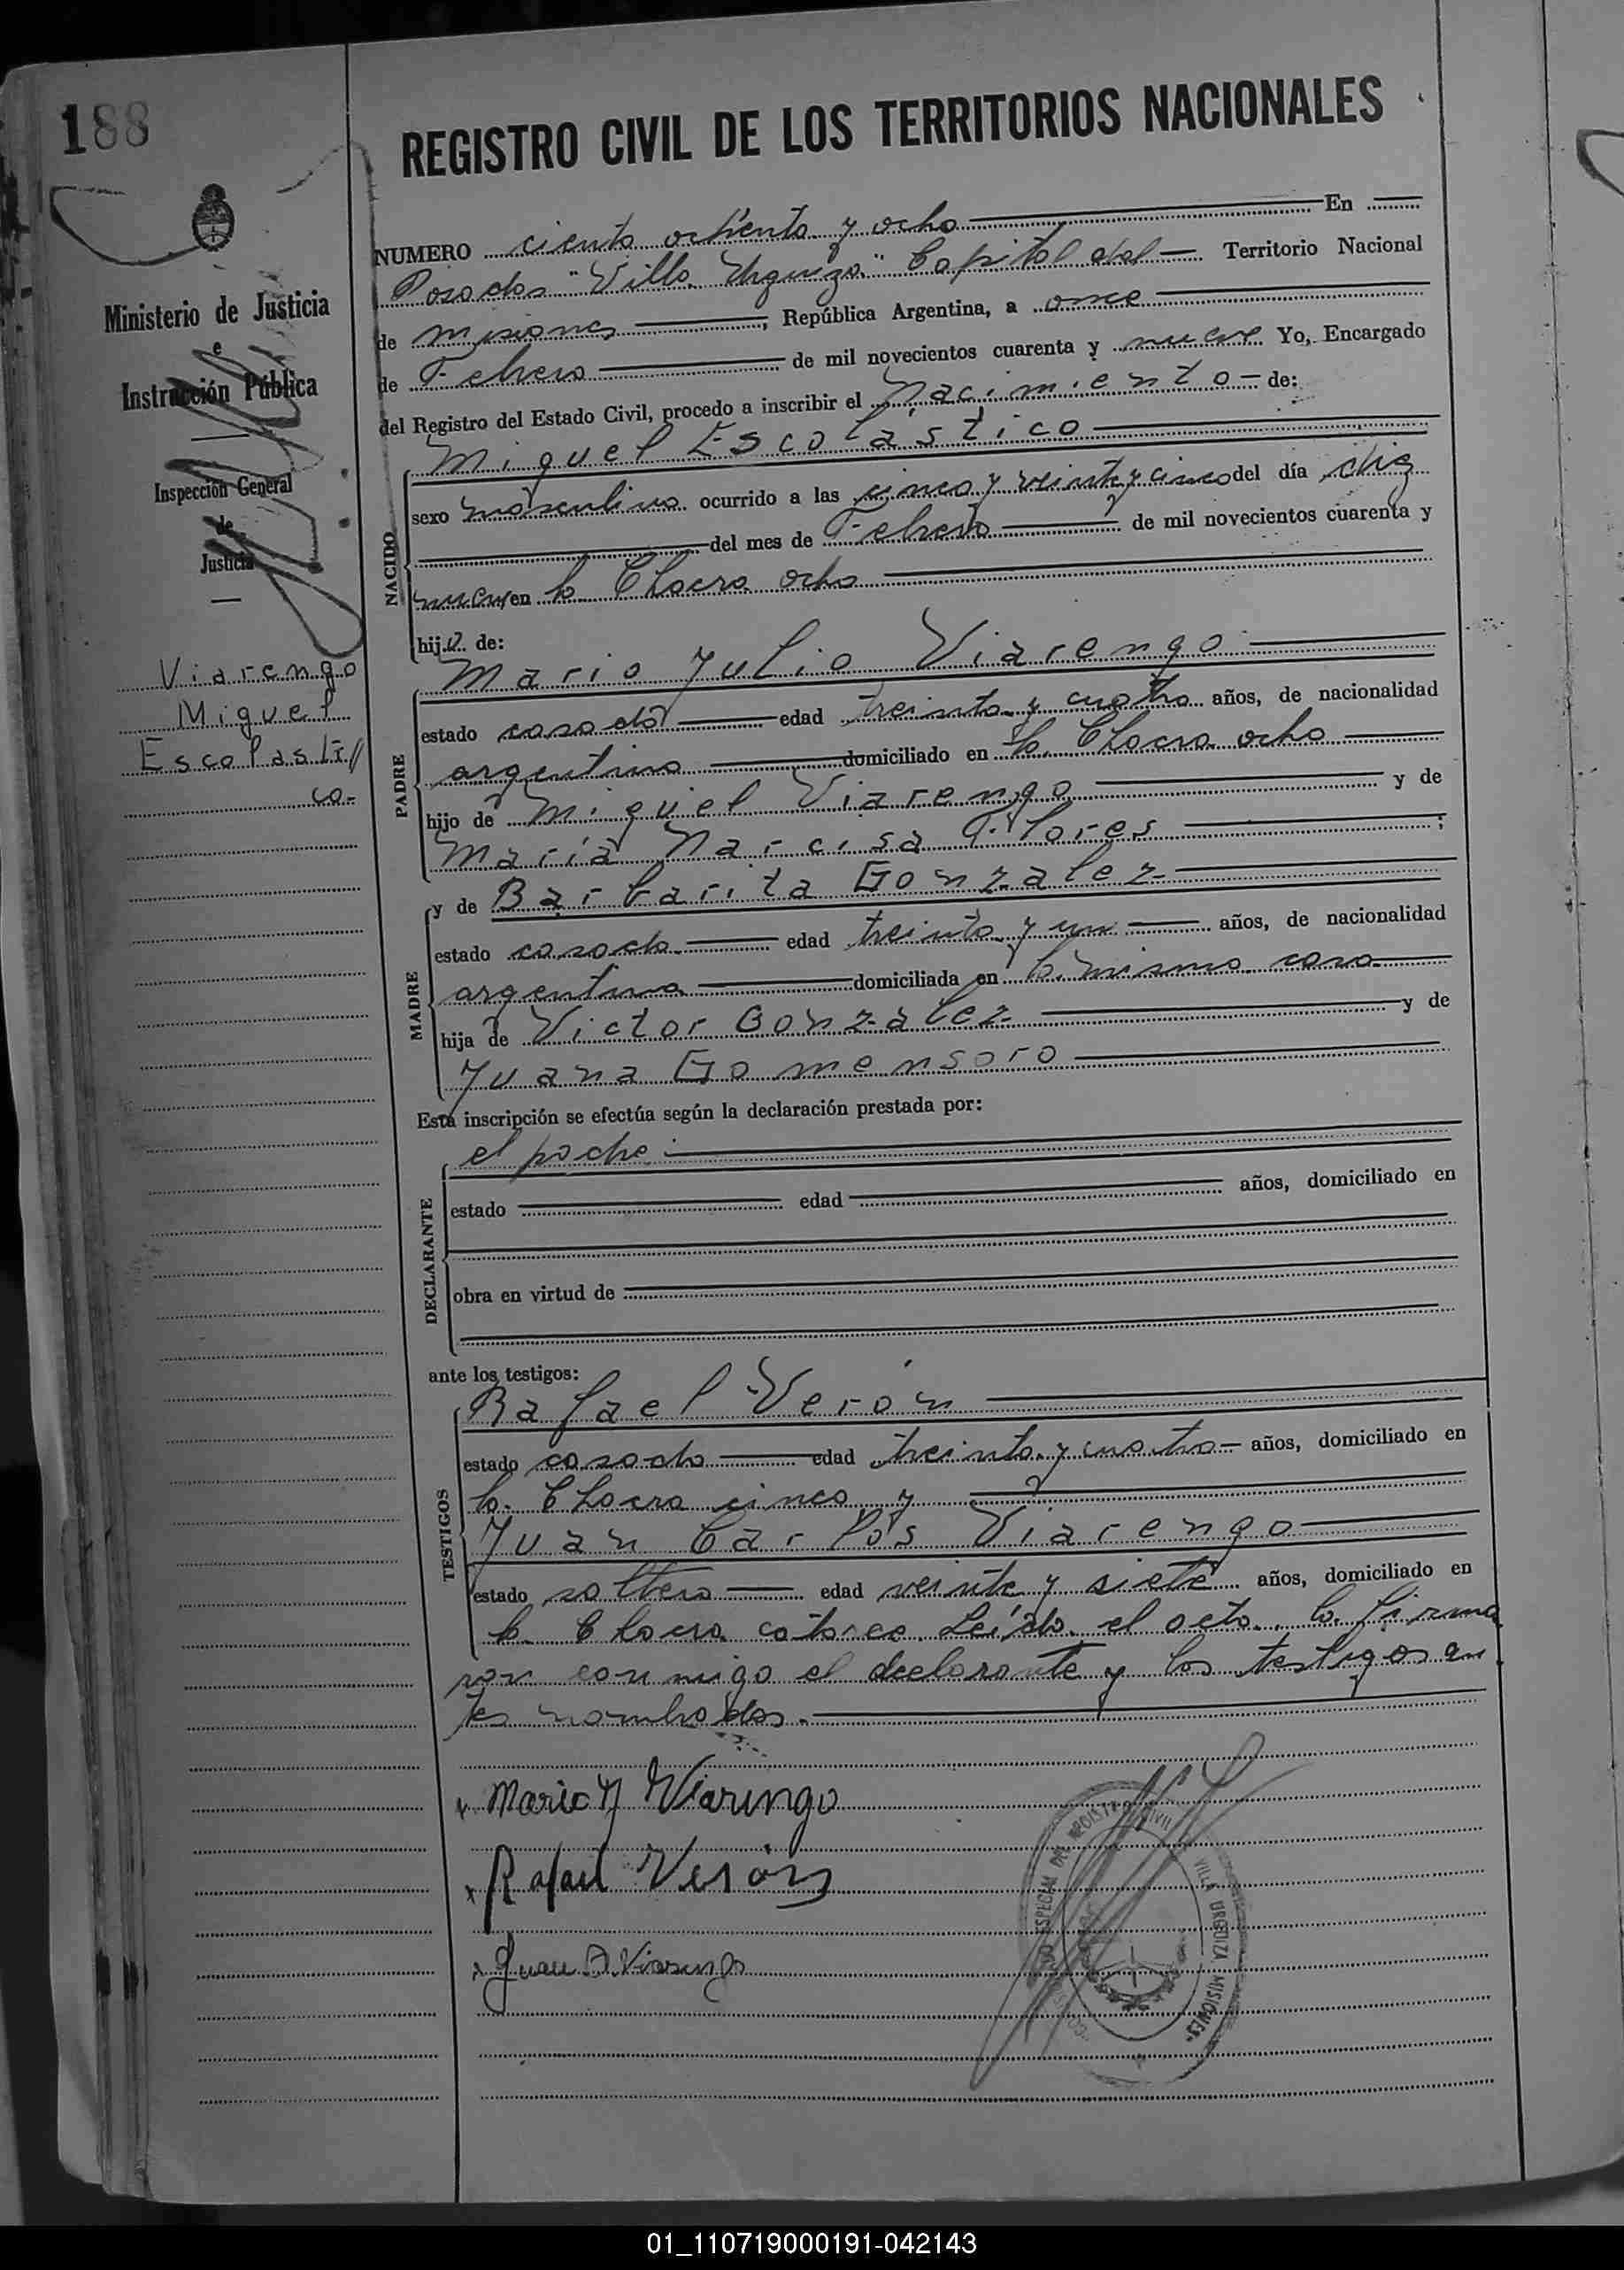 188
REGISTRO CIVIL DE LOS TERRITORIOS NACIONALES
Ministerio de Justicia
e
Instrucción Pública
Inspección General
de
Justicia
Viarengo
Miguel
Escolasti//
co-
NUMERO ciento ochenta y ocho En
Posadas "Villa Urquiza" Capital del Territorio Nacional
de Misiones, República Argentina, a once
de Febrero de mil novecientos cuarenta y nueve Yo, Encargado
del Registro del Estado Civil, procedo a inscribir el Nacimiento de:
NACIDO
Miguel Escolastico
sexo masculino ocurrido a las cinco y veinte y cinco del día diez
del mes de Febrero de mil novecientos cuarenta y
nueve en la Chacra ocho
hijo de:
PADRE
Mario Julio Viarengo
estado casado edad treinta y cuatro años, de nacionalidad
argentina domiciliado en la Chacra ocho
hijo de Miguel Viarengo y de
María Narcisa Flores;
MADRE
y de Barbarita Gonzalez
estado casada edad treinta y un años, de nacionalidad
argentina domiciliada en la misma casa
hija de Victor Gonzalez y de
Juana Gomensoro
Esta inscripción se efectúa según la declaración prestada por:
DECLARANTE
el padre
estado edad años, domiciliado en
obra en virtud de
ante los testigos:
TESTIGOS
Rafael Verón
estado casado edad treinta y cuatro años, domiciliado en
la Chacra cinco y
Juan Carlos Viarengo
estado soltero edad veinte y siete años, domiciliado en
la Chacra catorce. Leída el acta, la firma
ron conmigo el declarante y los testigos an
tes nombrados.
Mario J Viarengo
Rafael Verón
Juan Viarengo
ESPECIAL DEL REGISTRO CIVIL
VILLA URQUIZA, MISIONES
01_110719000191-042143